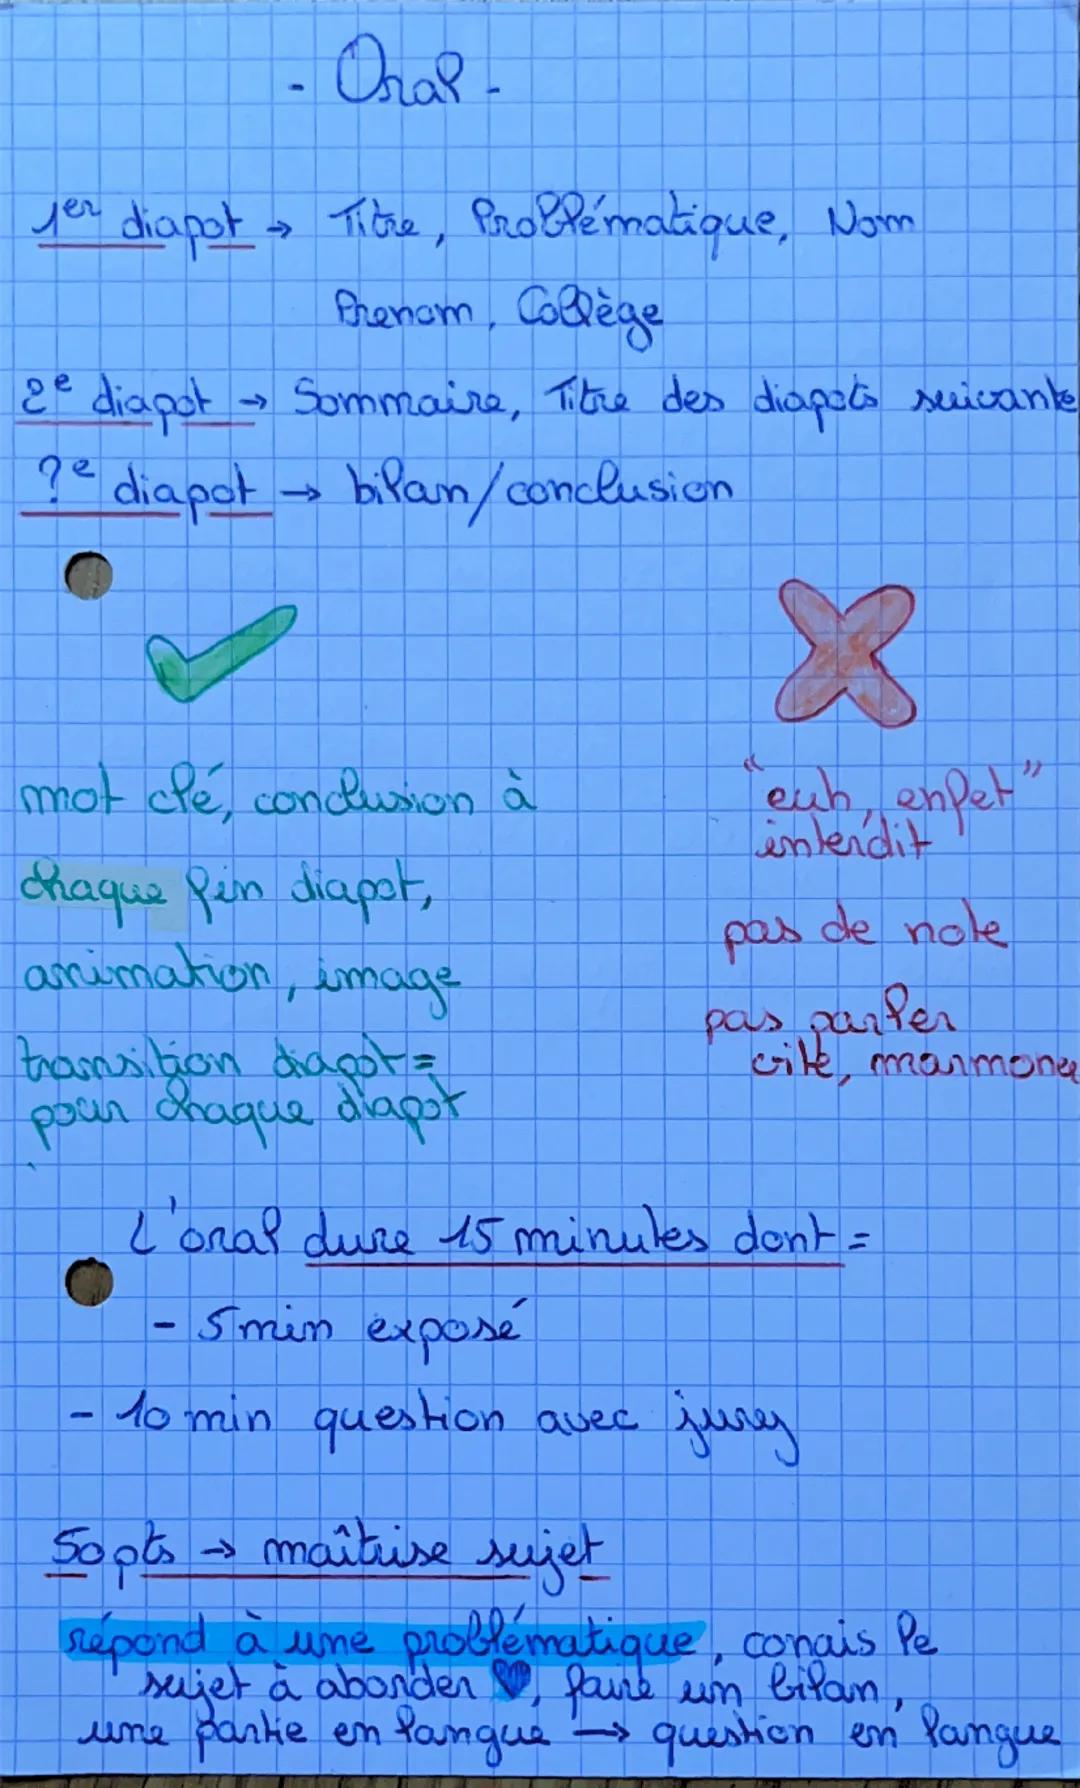 - Oral -
1er diapot → Titre, Problématique, Nom
Prenom, Collège
2e diapot → Sommaire, Titre des diapots suivante
?e diapot → bilan/conclusion
mot clé, conclusion à
chaque fin diapot,
animation, image
transition diapot =
pour chaque diapot
"euh, enfet"
interdit
pas de note
pas parler
vite, marmoner
L'oral dure 15 minutes dont =
- 5 min exposé
- 10 min question avec jurey
50 pts → maîtrise sujet
répond à une problématique, conais le
sujet à aborder ♥, faire un bilan,
une partie en langue → question en langue